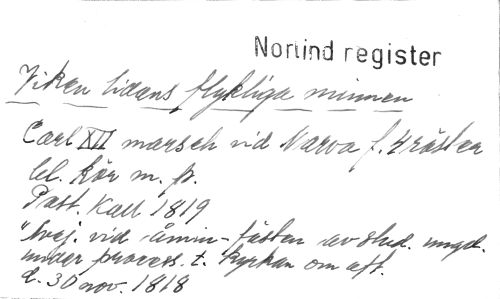 Norlind register
Viken tidens flyktiga minnen
Carl XII marsch vid Narva f. 4 röster
bl. kör m. p.
Part. Kall 1819
"Svej. vid åmin-fästen av stud. ungd.
under process. t. kyrkan om aft.
d. 30 nov. 1818